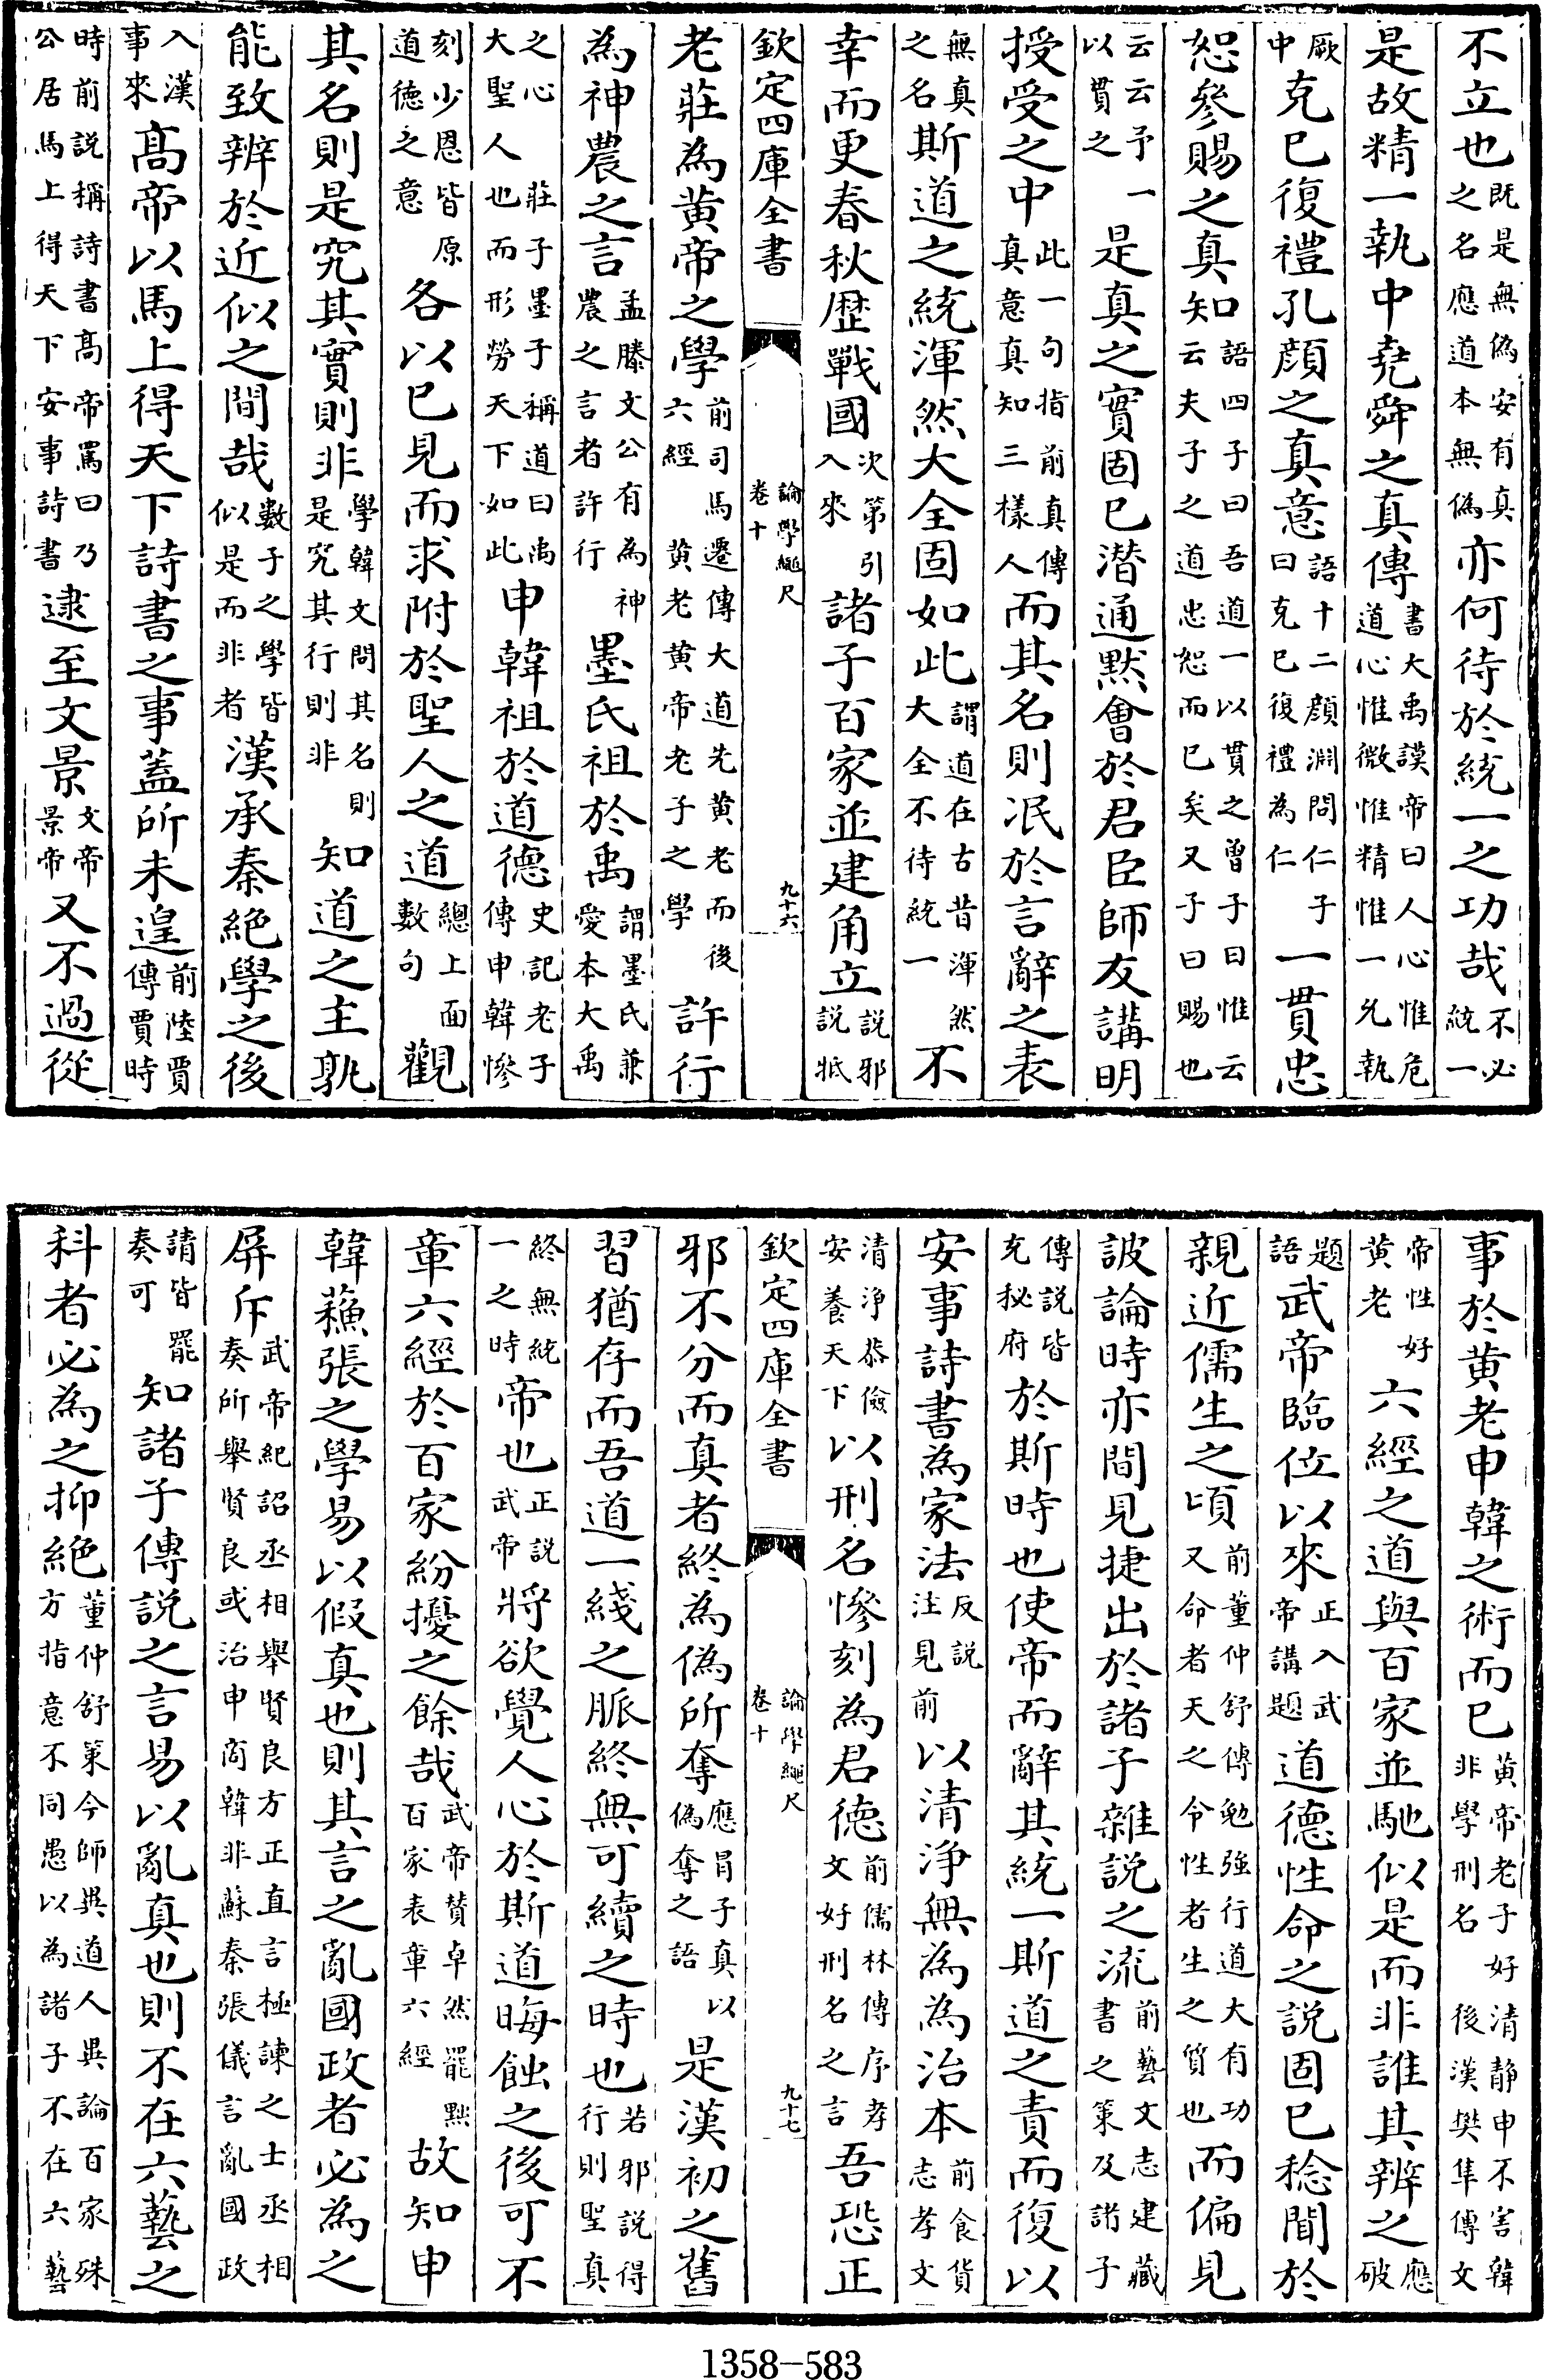 不立也既是無偽安有真之名應道本無偽亦何待於統一之功哉不必統一
是故精一執中堯舜之真傳書大禹謨帝曰人心惟危道心惟微惟精惟一允執
厥中克已復禮孔顔之真意語十二顔淵問仁子曰克已復禮為仁一貫忠
恕參賜之真知語四子曰吾道一以貫之曾子曰惟云云夫子之道忠恕而已矣又子曰賜也
云云予一以貫之是真之實固已潜通黙會於君臣師友講明
授受之中此一句指前真傳真意真知三様人而其名則泯於言辭之表
無真之名斯道之統渾然大全固如此謂道在古昔渾然大全不待統一不
幸而更春秋歴戰國次第引入來諸子百家並建角立説邪説牴
欽定四庫全書 論學繩尺 卷十 九十六
老莊為黄帝之學前司馬遷傳大道先黄老而後六經黄老黄帝老子之學許行
為神農之言孟滕文公有為神農之言者許行墨氏祖於禹謂墨氏兼愛本大禹
之心大聖人莊子墨子稱道曰禹也而形勞天下如此申韓祖於道德史記老子傳申韓慘
刻少恩皆原道德之意各以已見而求附於聖人之道總上面數句觀
其名則是究其實則非學韓文問其名則是究其行則非知道之主孰
能致辨於近似之間哉數子之學皆似是而非者漢承秦絶學之後
入漢事來髙帝以馬上得天下詩書之事葢所未遑前陸賈傳賈時
時前説稱詩書髙帝罵曰乃公居馬上得天下安事詩書逮至文景文帝景帝又不過從
事於黄老申韓之術而已黄帝老子好清静申不害韓非學刑名後漢樊凖傳文
帝性好黄老六經之道與百家並馳似是而非誰其辨之應破
題語武帝臨位以來正入武帝講題道德性命之説固已稔聞於
親近儒生之頃前董仲舒傳勉強行道大有功又命者天之令性者生之質也而偏見
詖論時亦間見捷出於諸子雜説之流前藝文志建藏書之策及諸子
傳説皆充秘府於斯時也使帝而辭其統一斯道之責而復以
安事詩書為家法反説注見前以清浄無為為治本前食貨志孝文
清浄恭儉安養天下以刑名慘刻為君德前儒林傳序孝文好刑名之言吾恐正
欽定四庫全書 論學繩尺 卷十 九十七
邪不分而真者終為偽所奪應冐子真以偽奪之語是漢初之舊
習猶存而吾道一綫之脈終無可續之時也若邪説得行則聖真
終無統一之時帝也正説武帝將欲覺人心於斯道晦蝕之後可不
章六經於百家紛擾之餘哉武帝賛卓然罷黜百家表章六經故知申
韓蘓張之學易以假真也則其言之亂國政者必為之
屏斥武帝紀詔丞相舉賢良方正直言極諫之士丞相奏所舉賢良或治申商韓非蘇秦張儀言亂國政
請皆罷奏可知諸子傳説之言易以亂真也則不在六藝之
科者必為之抑絶董仲舒策今師異道人異論百家殊方指意不同愚以為諸子不在六藝
1358—583